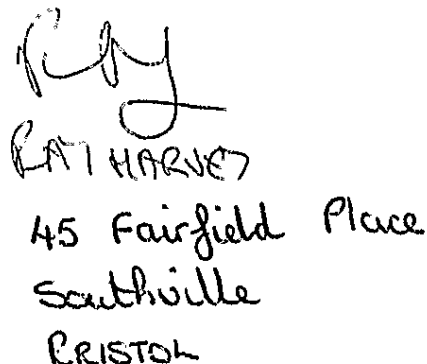 Ray
RAY HARVEY
45 Fairfield Place
Southville
BRISTOL